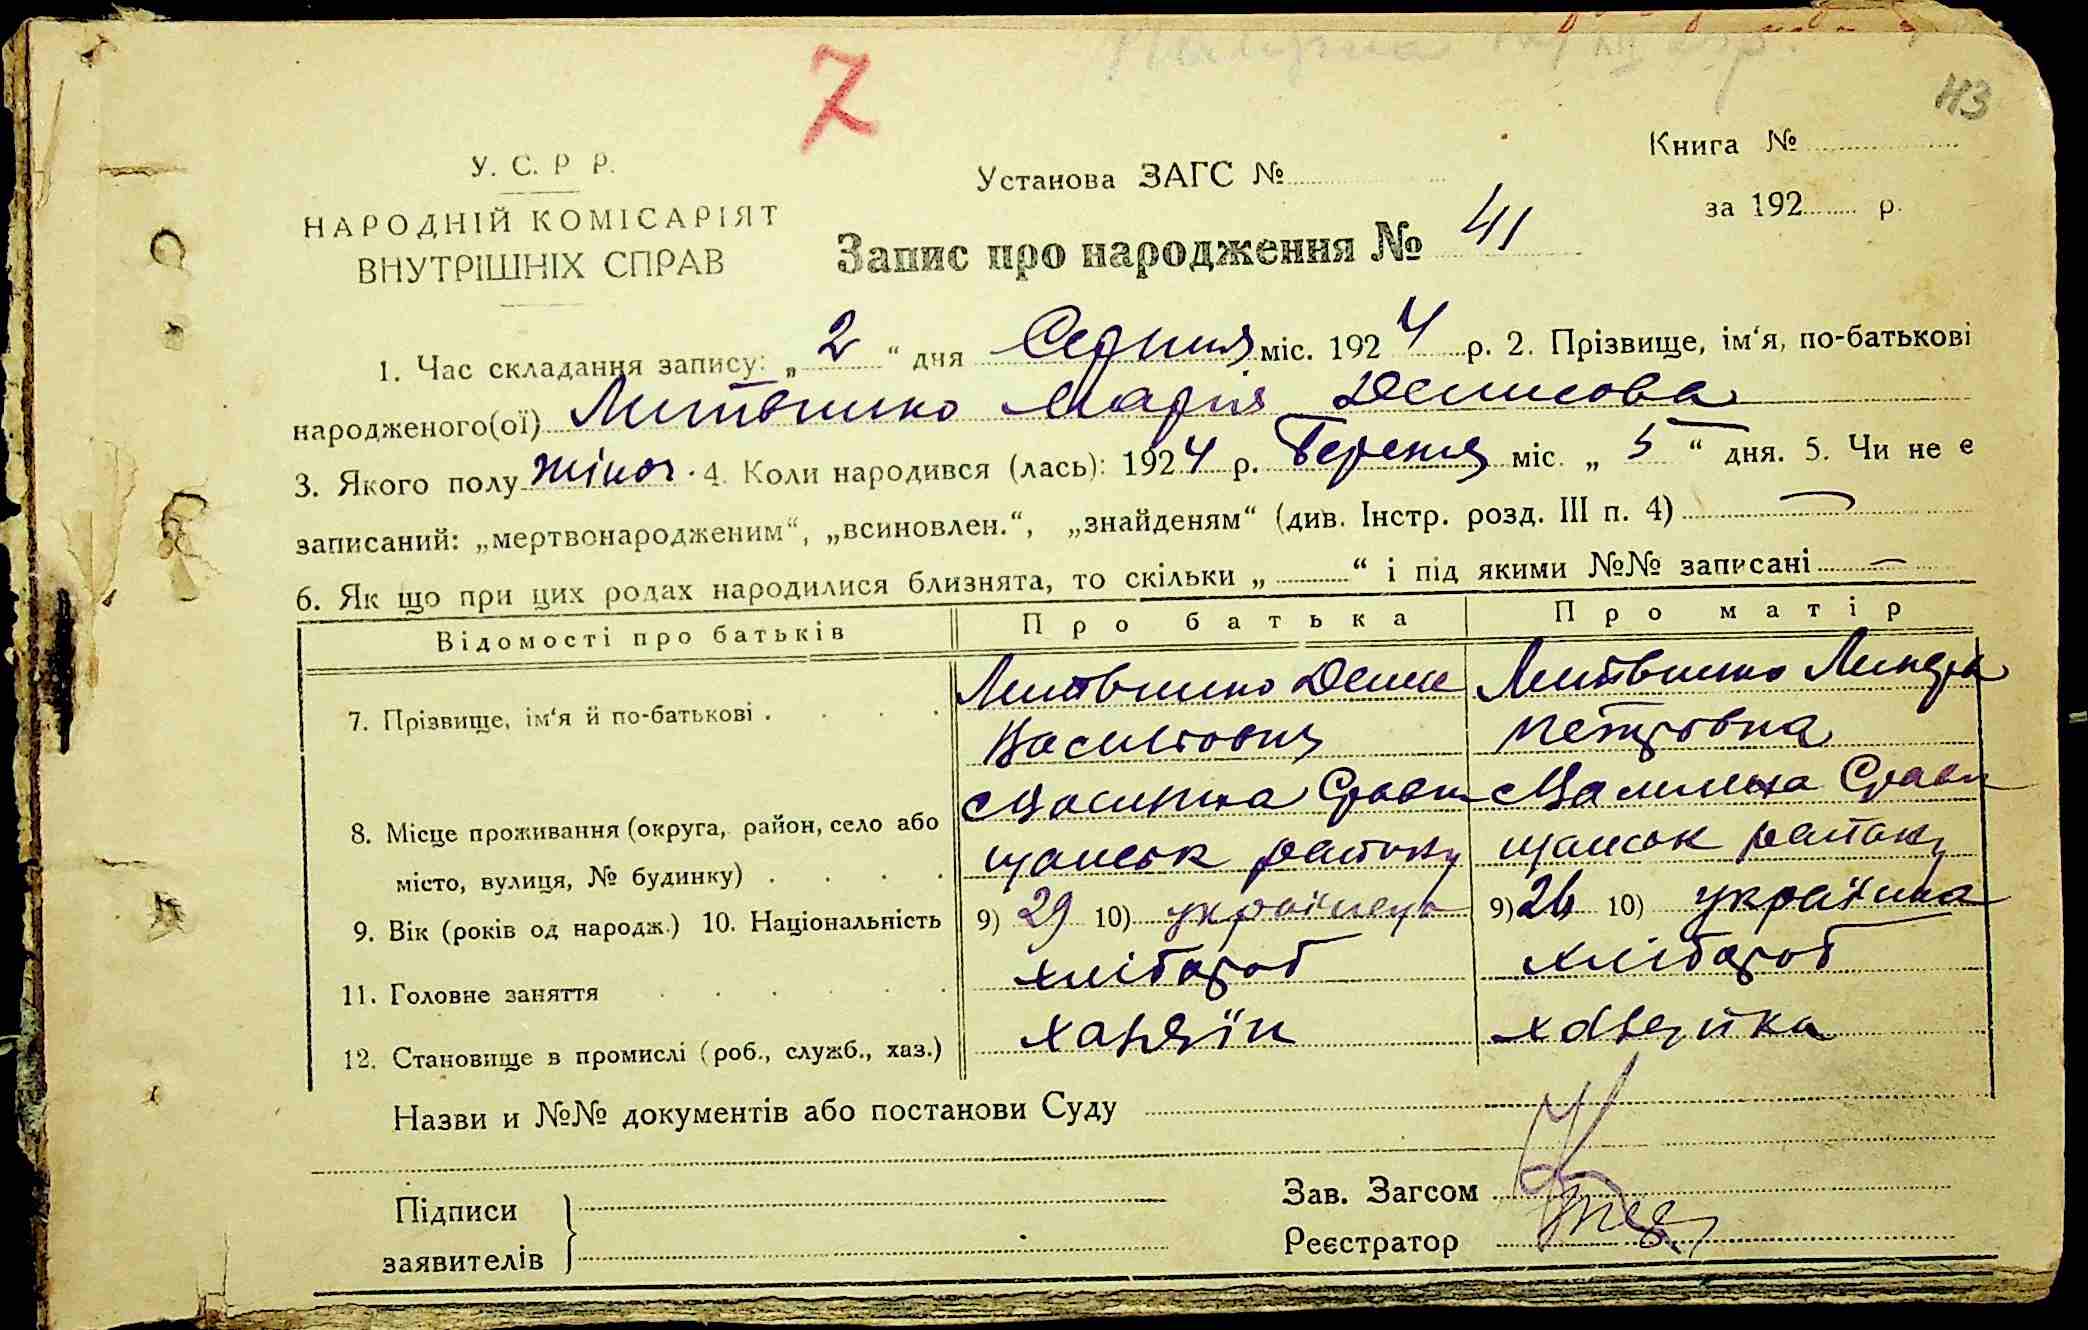 7
113
У. С. Р Р.
НАРОДНІЙ КОМІСАРІЯТ
ВНУТРІШНІХ СПРАВ
Установа ЗАГС №
Книга №
за 192 р.
Запис про народження № 41
1. Час складання запису: „ 2 “ дня Серпня міс. 192 4 р. 2. Прізвище, ім‘я, по-батькові
народженого(ої) Литвинко Марія Денисова
3. Якого полу жіноч. 4. Коли народився (лась): 1924 р. Березня міс. „ 5 “ дня. 5. Чи не є
записаний: „мертвонародженим“, „всиновлен.“, „знайденям“ (див. Інстр. розд. III п. 4) —
6. Як що при цих родах народилися близнята, то скільки „ “ і під якими №№ записані —
Відомості про батьків Про батька Про матір
7. Прізвище, ім‘я й по-батькові . . . . Литвинко Денис Литвинко
Васильович Петровна
8. Місце проживання (округа, район, село або
місто, вулиця, № будинку) . . . . району району
9. Вік (років од народж.) 10. Національність 9) 29 10) українець 9) 26 10) українка
11. Головне заняття . . . . . . хлібороб хлібороб
12. Становище в промислі (роб., служб., хаз.) хазяїн хазяйка
Назви и №№ документів або постанови Суду
Підписи
заявителів
Зав. Загсом
Реєстратор